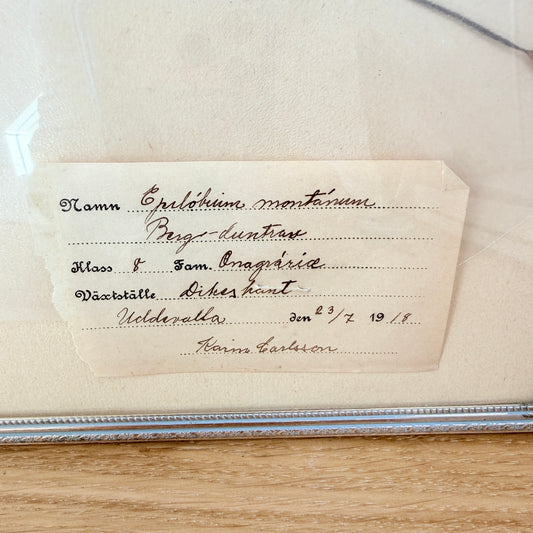 Namn Epilóbium montánum
Bergs-duntrav
Klass 8 Fam. Onagráriæ
Växtställe Dikeskant
Uddevalla den 23/7 1918
Karin Carlsson